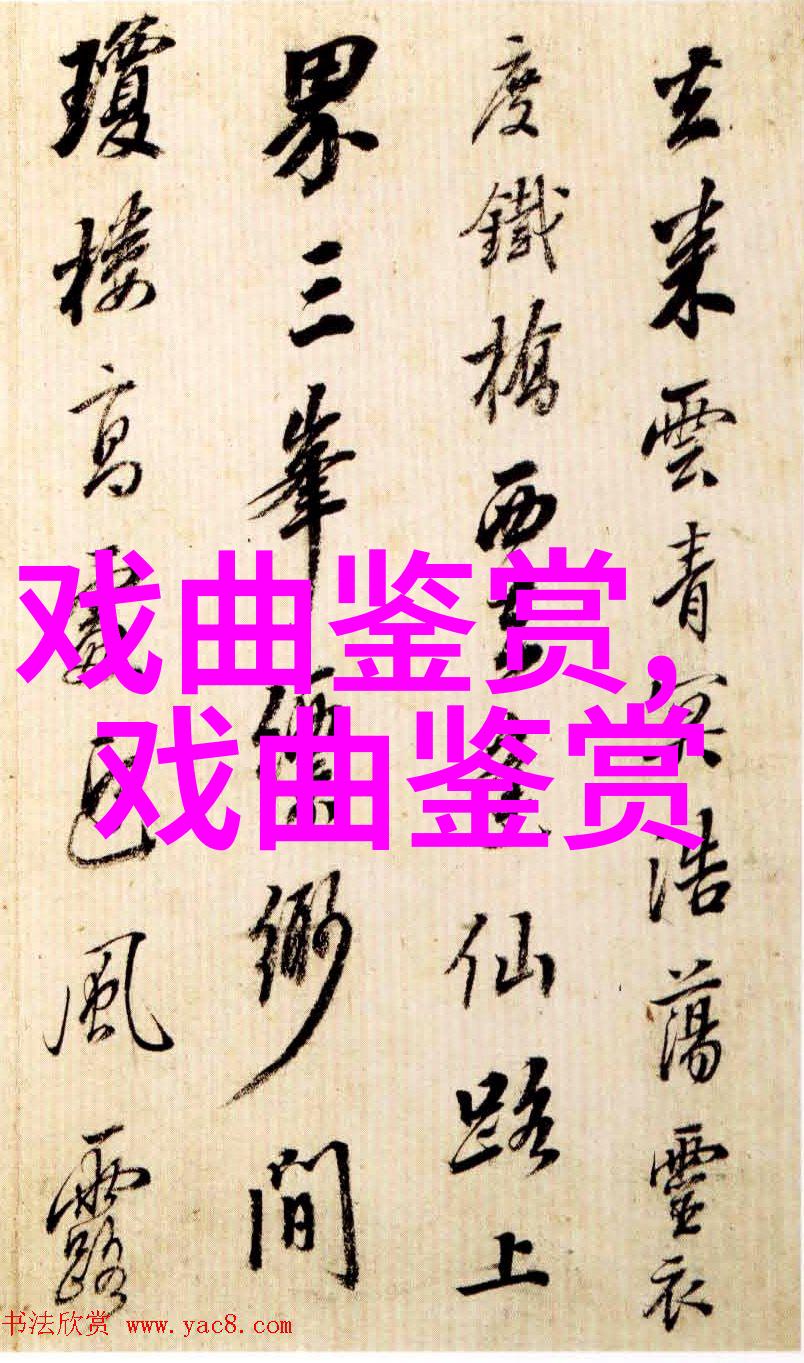 雲青冥浩蕩靈衣
度鐵橋西仙路上
界三峯緲間
瓊樓高風露
戏曲鉴赏,
戏曲鉴赏
书法欣赏 www.yac8.com